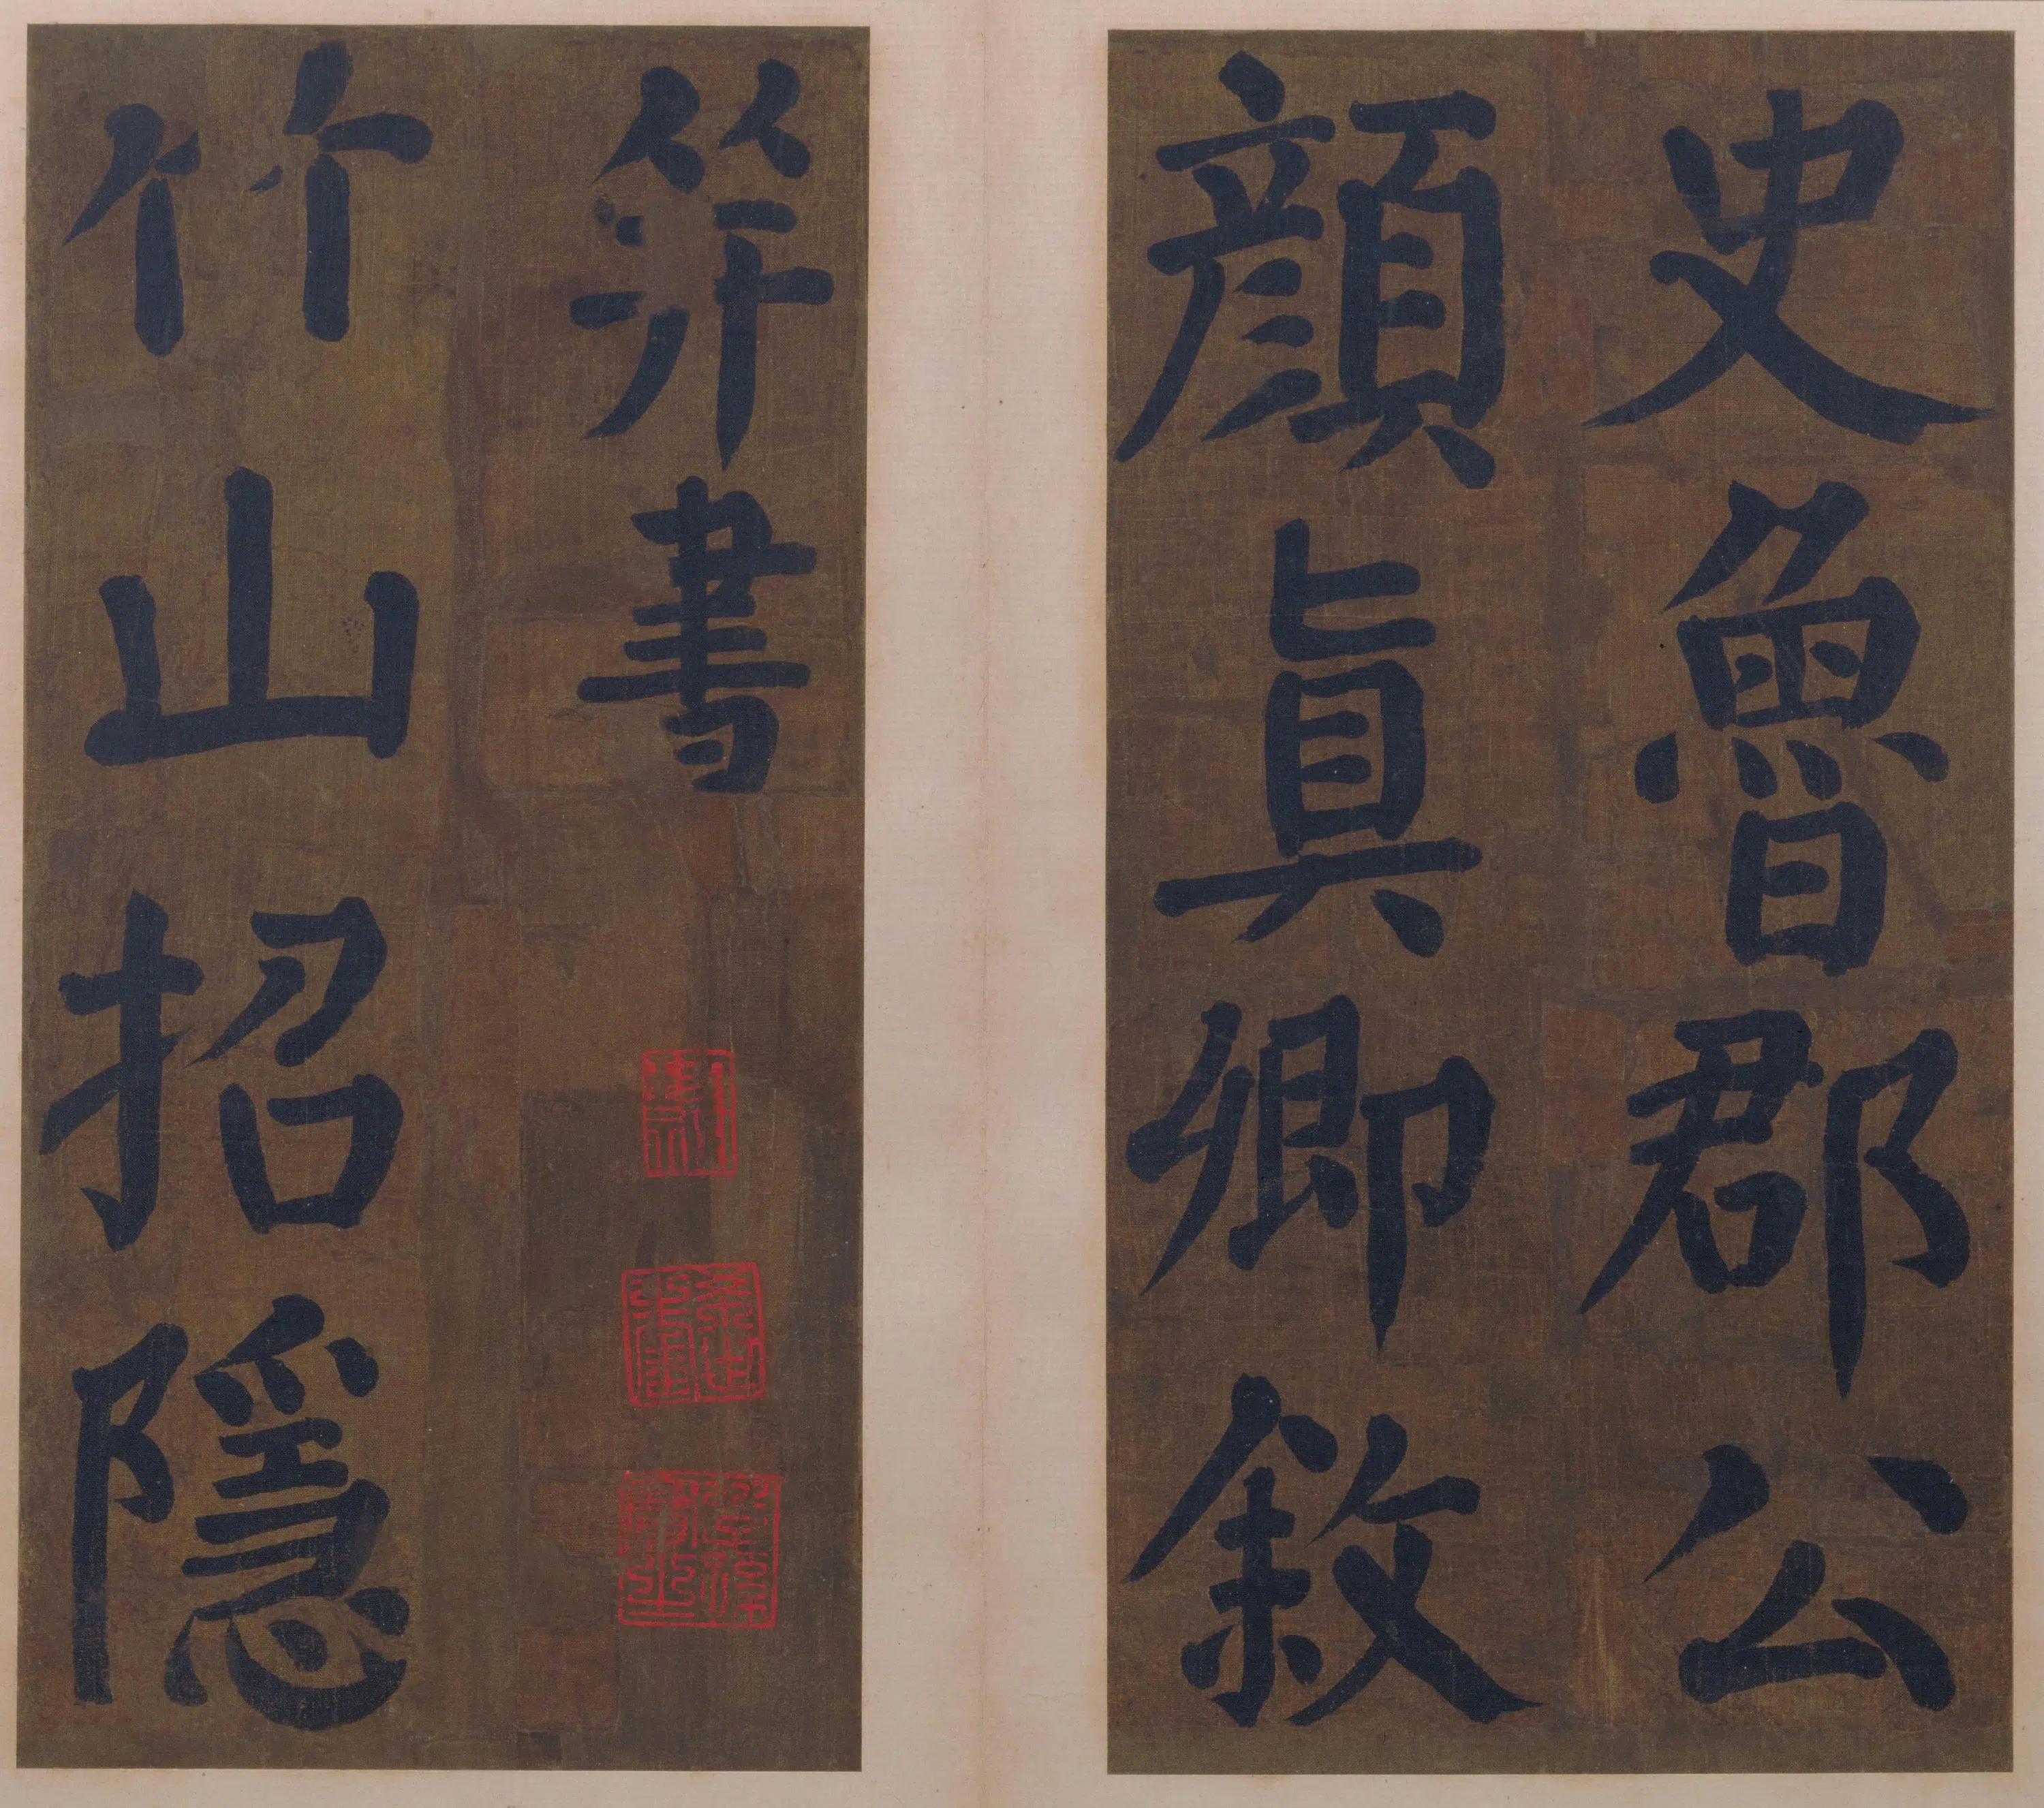 史魯郡公
顏眞卿敘
并書
竹山招隱